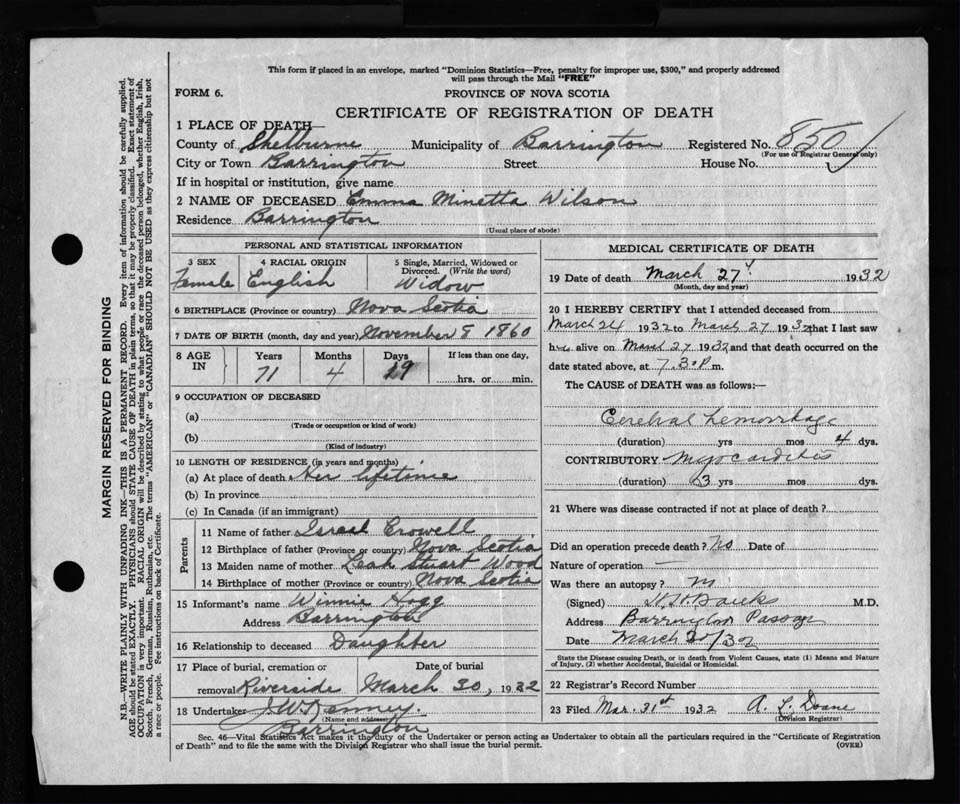 This form if placed in an envelope, marked "Dominion Statistics—Free, penalty for improper use, $300," and properly addressed
will pass through the Mail "FREE"
FORM 6.
PROVINCE OF NOVA SCOTIA
CERTIFICATE OF REGISTRATION OF DEATH
1 PLACE OF DEATH—
County of Shelburne Municipality of Barrington Registered No. 850
(For use of Registrar General only)
City or Town Barrington Street House No.
If in hospital or institution, give name
2 NAME OF DECEASED Emma Minetta Wilson
Residence Barrington
(Usual place of abode)
MARGIN RESERVED FOR BINDING
N.B.—WRITE PLAINLY WITH UNFADING INK—THIS IS A PERMANENT RECORD. Every item of information should be carefully supplied.
AGE should be stated EXACTLY. PHYSICIANS should STATE CAUSE OF DEATH in plain terms, so that it may be properly classified. Exact statement of
OCCUPATION is very important. RACIAL ORIGIN will be described by stating to what people or race the deceased person belonged, whether English, Irish,
Scotch, French, German, Russian, Ruthenian, etc. The terms "AMERICAN" or "CANADIAN" SHOULD NOT BE USED as they express citizenship but not
a race or people. See instructions on back of Certificate.
PERSONAL AND STATISTICAL INFORMATION
3 SEX
Female
4 RACIAL ORIGIN
English
5 Single, Married, Widowed or
Divorced. (Write the word)
Widow
6 BIRTHPLACE (Province or country) Nova Scotia
7 DATE OF BIRTH (month, day and year) November 8 1860
8 AGE
IN
Years
71
Months
4
Days
19
If less than one day,
hrs. or min.
9 OCCUPATION OF DECEASED
(a)
(Trade or occupation or kind of work)
(b)
(Kind of industry)
10 LENGTH OF RESIDENCE (in years and months)
(a) At place of death Her lifetime
(b) In province
(c) In Canada (if an immigrant)
Parents
11 Name of father Israel Crowell
12 Birthplace of father (Province or country) Nova Scotia
13 Maiden name of mother Leah Stuart Wood
14 Birthplace of mother (Province or country) Nova Scotia
15 Informant's name Winnie Hogg
Address Barrington
16 Relationship to deceased Daughter
17 Place of burial, cremation or
removal Riverside
Date of burial
March 30, 1932
18 Undertaker J. W. Kenney.
(Name and address)
Barrington
MEDICAL CERTIFICATE OF DEATH
19 Date of death March 27 1932
(Month, day and year)
20 I HEREBY CERTIFY that I attended deceased from
March 24 1932 to March 27 1932 that I last saw
her alive on March 27 1932 and that death occurred on the
date stated above, at 7.30 P m.
The CAUSE of DEATH was as follows:—
Cerebral hemorrhage
(duration) yrs mos 4 dys.
CONTRIBUTORY Myocarditis
(duration) 3 yrs mos dys.
21 Where was disease contracted if not at place of death?
Did an operation precede death? No Date of
Nature of operation —
Was there an autopsy?
(Signed) M.D.
Address Barrington Passage
Date March 30/32
State the Disease causing Death, or in death from Violent Causes, state (1) Means and Nature
of Injury, (2) whether Accidental, Suicidal or Homicidal.
22 Registrar's Record Number
23 Filed Mar. 31st 1932 A. L. Doane
(Division Registrar)
Sec. 46—Vital Statistics Act makes it the duty of the Undertaker or person acting as Undertaker to obtain all the particulars required in the "Certificate of Registration
of Death" and to file the same with the Division Registrar who shall issue the burial permit.
(OVER)